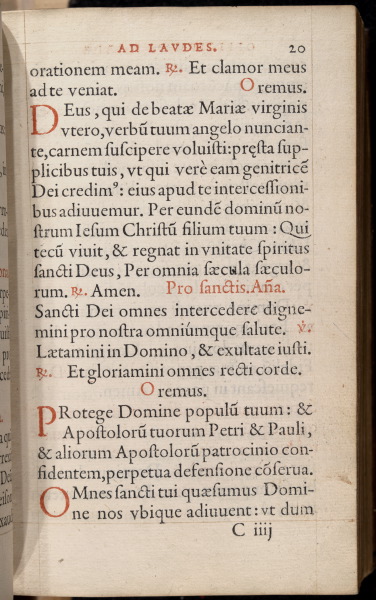 AD LAVDES. 20
orationem meam. ℟. Et clamor meus
ad te veniat. Oremus.
DEus, qui de beatæ Mariæ virginis
vtero, verbũ tuum angelo nuncian-
te, carnem ſuſcipere voluiſti: pręſta ſup-
plicibus tuis, vt qui verè eam genitricẽ
Dei credimꝰ: eius apud te interceſſioni-
bus adiuuemur. Per eundẽ dominũ no-
ſtrum Ieſum Chriſtũ filium tuum: Qui
tecũ viuit, & regnat in vnitate ſpiritus
ſancti Deus, Per omnia ſæcula ſæculo-
rum. ℟. Amen. Pro ſanctis. Aña.
Sancti Dei omnes intercedere digne-
mini pro noſtra omniúmque ſalute. ℣.
Lætamini in Domino, & exultate iuſti.
℟. Et gloriamini omnes recti corde.
Oremus.
PRotege Domine populũ tuum: &
Apoſtolorũ tuorum Petri & Pauli,
& aliorum Apoſtolorũ patrocinio con-
fidentem, perpetua defenſione cõſerua.
OMnes ſancti tui quæſumus Domi-
ne nos vbique adiuuent: vt dum
C iiij